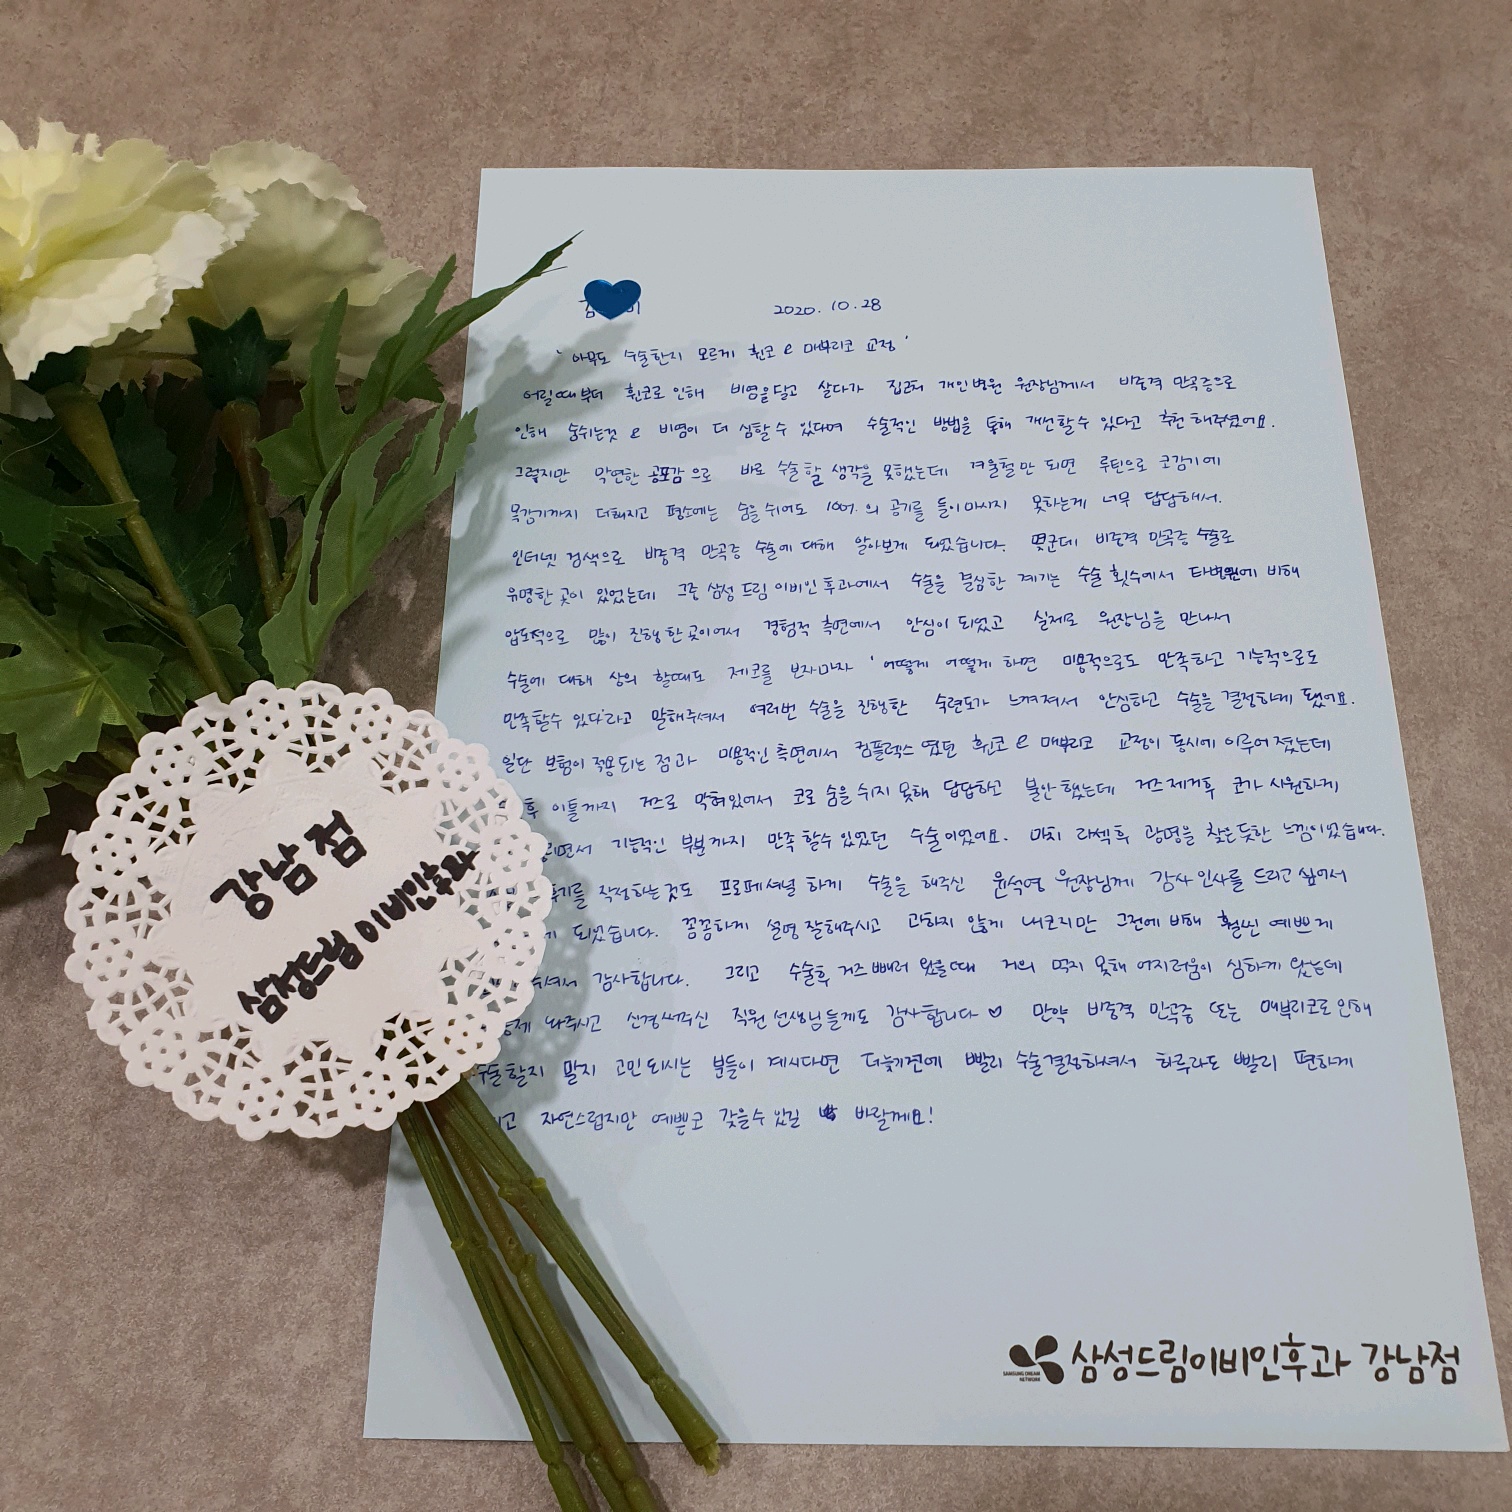 2020. 10. 28
' 아무도 수술한지 모르게 휜코 & 매부리코 교정 '
어릴때부터 휜코로 인해 비염을 달고 살다가 집근처 개인병원 원장님께서 비중격 만곡증으로
인해 숨쉬는것 & 비염이 더 심할 수 있다며 수술적인 방법을 통해 개선할수 있다고 추천해주셨어요.
그렇지만 막연한 공포감으로 바로 수술할 생각을 못했는데 겨울철만 되면 루틴으로 코감기에
목감기까지 더해지고 평소에는 숨을 쉬어도 100%의 공기를 들이마시지 못하는게 너무 답답해서.
인터넷 검색으로 비중격 만곡증 수술에 대해 알아보게 되었습니다. 몇군데 비중격 만곡증 수술로
유명한 곳이 있었는데 그중 삼성드림 이비인후과에서 수술을 결심한 계기는 수술 횟수에서 타병원에 비해
압도적으로 많이 진행한 곳이어서 경험적 측면에서 안심이 되었고 실제로 원장님을 만나서
수술에 대해 상의 할때도 제코를 보자마자 '어떻게 어떻게 하면 미용적으로도 만족하고 기능적으로도
만족할수 있다'라고 말해주셔서 여러번 수술을 진행한 숙련도가 느껴져서 안심하고 수술을 결정하게 됐어요.
일단 보험이 적용되는 점과 미용적인 측면에서 컴플렉스 였던 휜코 & 매부리코 교정이 동시에 이루어 졌는데
후 이틀까지 거즈로 막혀있어서 코로 숨을 쉬지 못해 답답하고 불안했는데 거즈제거후 코가 시원하게
면서 기능적인 부분까지 만족할수 있었던 수술이었어요. 마치 라섹후 광명을 찾은듯한 느낌이었습니다.
후기를 작성하는것도 프로페셔널 하게 수술을 해주신 윤석영 원장님께 감사인사를 드리고 싶어서
게 되었습니다. 꼼꼼하게 설명 잘해주시고 과하지 않게 내코지만 그전에 비해 훨씬 예쁘게
주셔서 감사합니다. 그리고 수술후 거즈빼러 왔을때 거의 먹지 못해 어지러움이 심하게 왔는데
놔주시고 신경써주신 직원 선생님들께도 감사합니다 ♡ 만약 비중격 만곡증 또는 매부리코로 인해
수술할지 말지 고민 되시는 분들이 계시다면 더늦기전에 빨리 수술결정하셔서 하루라도 빨리 편하게
고 자연스럽지만 예쁜코 갖을수 있길 바랄게요!
강남점
삼성드림이비인후과
SAMSUNG DREAM NETWORK
삼성드림이비인후과 강남점